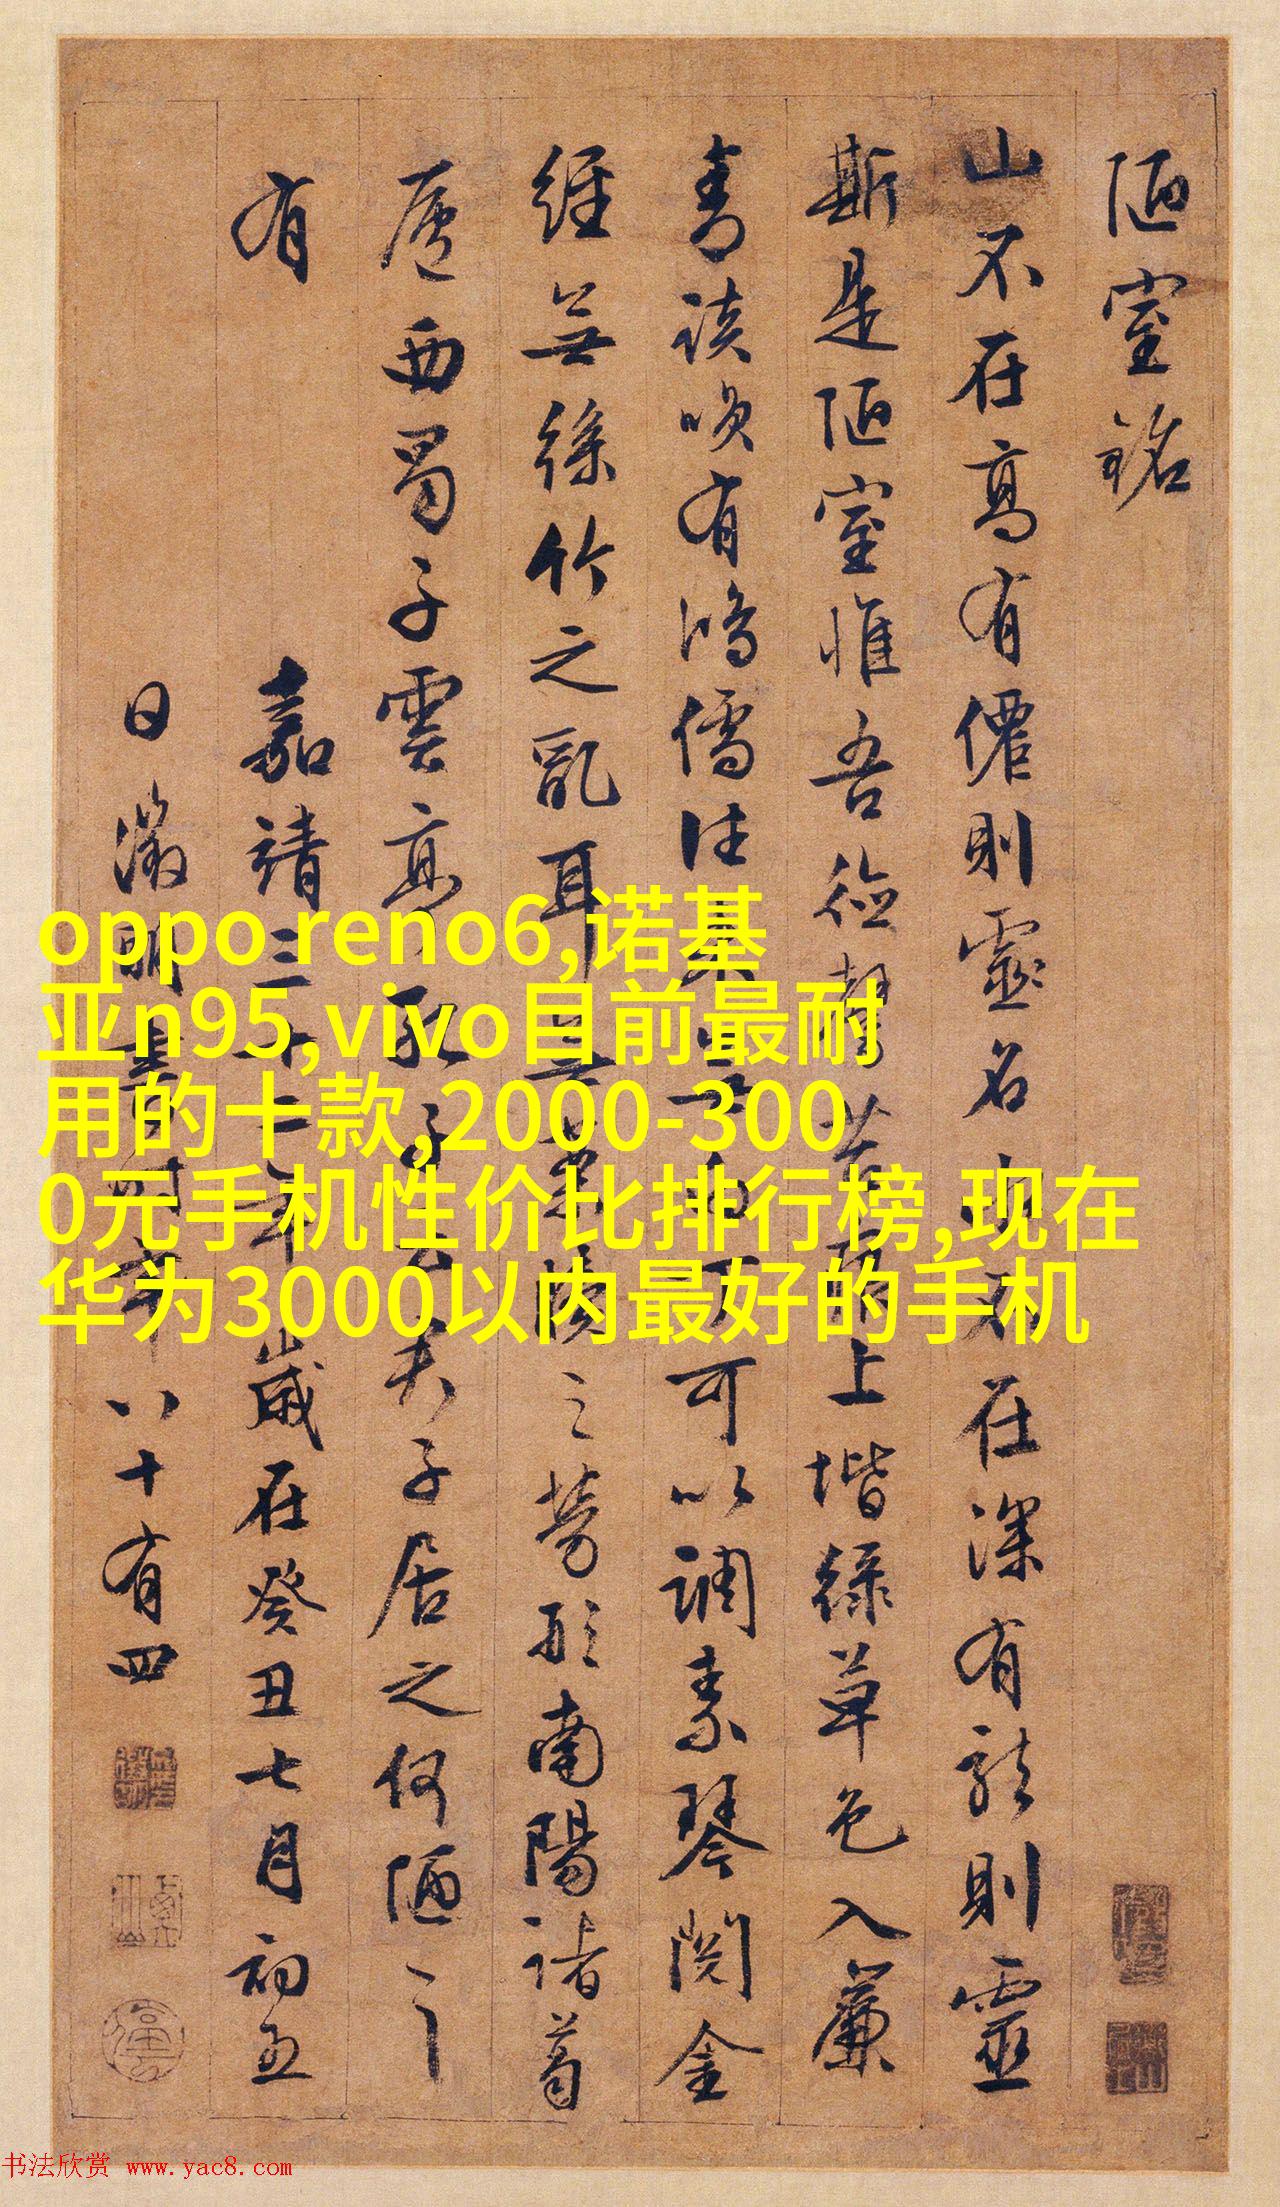 陋室銘
山不在高有僊則靈名水不在深有龍則靈
斯是陋室惟吾德馨苔痕上堦綠草色入簾
青談笑有鴻儒往來無白丁可以調素琴閱金
經無絲竹之亂耳無案牘之勞形南陽諸葛
廬西蜀子雲亭孔子云子居之何陋之
有
嘉靖三十二年歲在癸丑七月初五
日徵明書時年八十有四
oppo reno6,诺基
亚n95,vivo目前最耐
用的十款,2000-300
0元手机性价比排行榜,现在
华为3000以内最好的手机
书法欣赏 www.yac8.com